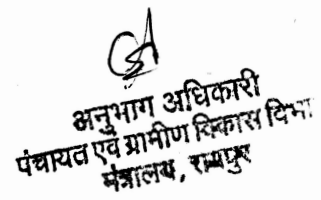 अनुभाग अधिकारी
पंचायत एवं ग्रामीण विकास विभा
मंत्रालय, रायपुर